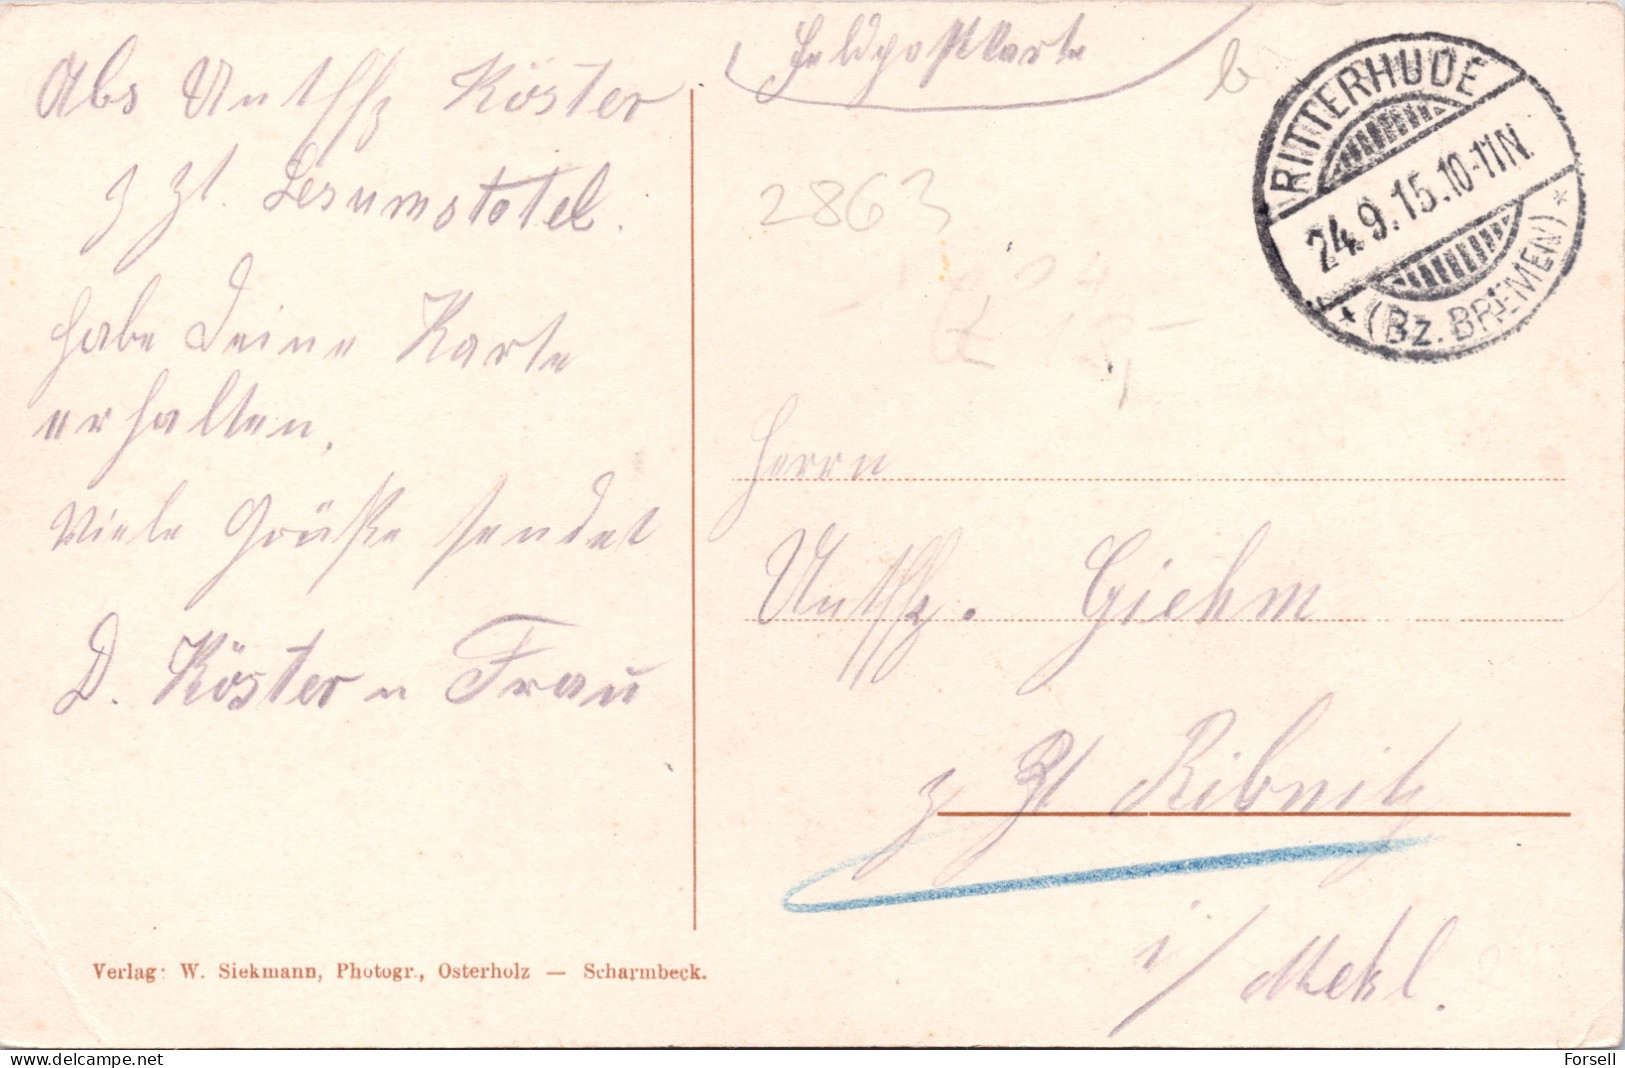 Abs Untffz Köster
z Zt. Lesumstotel.
habe Deine Karte
erhalten.
Viele Grüße sendet
D. Köster u Frau
Verlag: W. Siekmann, Photogr., Osterholz — Scharmbeck.
Feldpostkarte
b
RITTERHUDE
24.9.15.10-11N.
* (Bz. BREMEN) *
2863
18,-
Herrn
Untffz. Giehm
z Zt Ribnitz
i/Mekl.
delcampe.net
Forsell